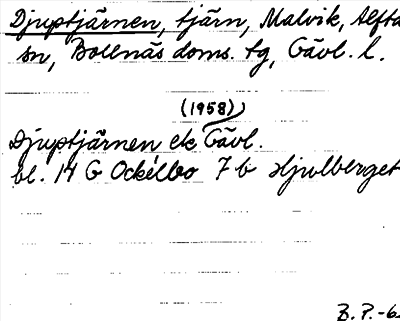 Djuptjärnen, tjärn, Malvik, Alfta
sn, Bollnäs doms. tg, Gävl. l.
(1958)
Djuptjärnen ek Gävl.
bl. 14 G Ockelbo 7 b Hjulberget
B. P. -6